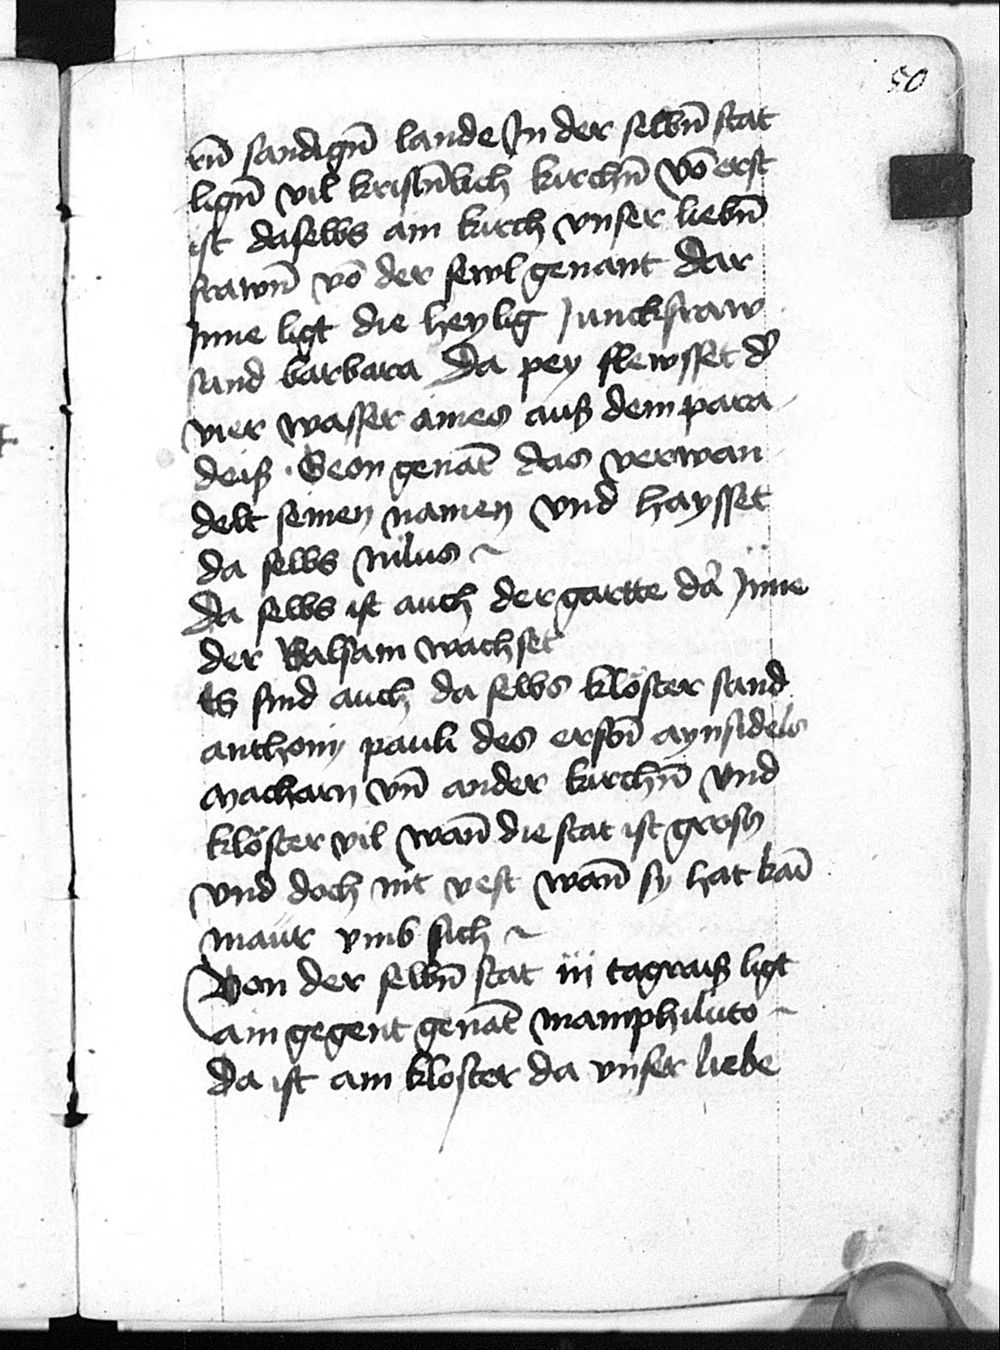 50
rn̄ sandign̄ lande In der selbn̄ stat
lign̄ vil kristn̄lich kirchn̄ Vō erst
ist daselbs ain kirch vnser liebn̄
frawn̄ vō der sewl genant Dar
Inne ligt die heylig Junckfraw
sand barbara Da pey flewsset d'
vier wasser aines auß dem para
deiß Geon genāt das verwan
delt seinen namen vnd haysset
da selbs Nilus ~
Da selbs ist auch der gartte da Inne
der Balsam wachset
Es sind auch da selbs klöster sand
anthonij pauli des erstn̄ aynsidels
Macharij vn̄ ander kirchn̄ vnd
klöster vil wan̄ die stat ist gross
vnd doch nit vest wan̄ sy hat kaī
maur vmb sich ~
Von der selbn̄ stat iij tagraiß ligt
ain gegent genāt mamphiluto ~
Da ist ain kloster da vnser liebe